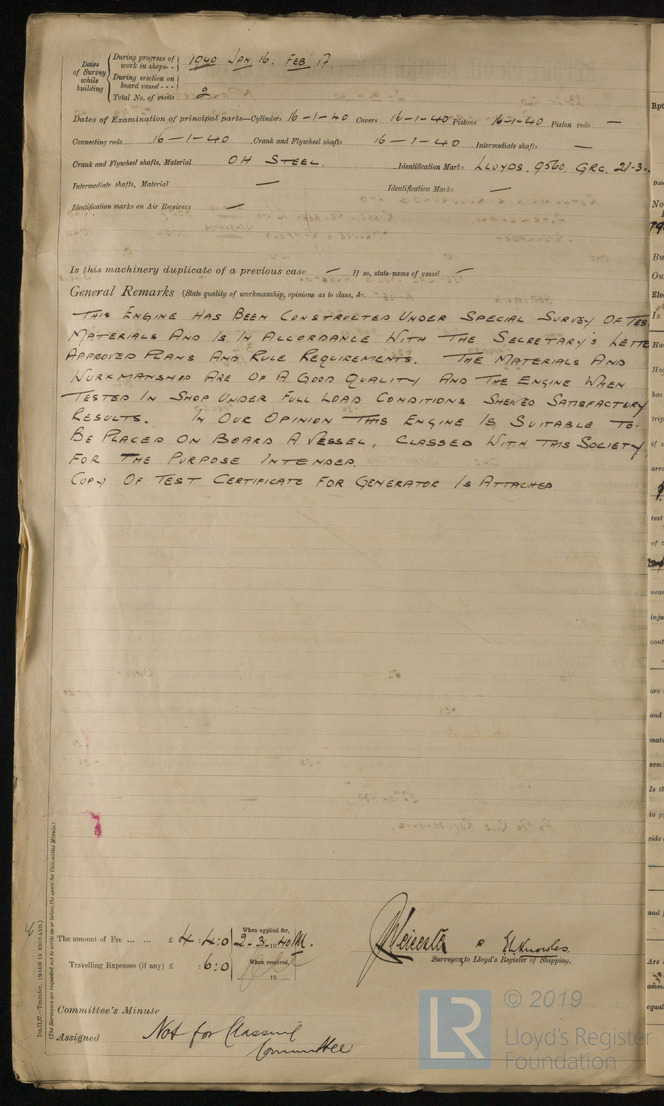 Dates of Survey while building
During progress of work in shops - - 1940 JAN 16. FEB 17
During erection on board vessel - - -
Total No. of visits 2
Dates of Examination of principal parts—Cylinders 16-1-40 Covers 16-1-40 Pistons 16-1-40 Piston rods —
Connecting rods 16-1-40 Crank and Flywheel shafts 16-1-40 Intermediate shafts —
Crank and Flywheel shafts, Material OH STEEL. Identification Marks LLOYDS. 9560. GRC. 21-3-
Intermediate shafts, Material — Identification Marks —
Identification marks on Air Receivers —
Is this machinery duplicate of a previous case — If so, state name of vessel —
General Remarks (State quality of workmanship, opinions as to class, &c.
THIS ENGINE HAS BEEN CONSTRUCTED UNDER SPECIAL SURVEY OF TES
MATERIALS AND IS IN ACCORDANCE WITH THE SECRETARY'S LETTE
APPROVED PLANS AND RULE REQUIREMENTS. THE MATERIALS AND
WORKMANSHIP ARE OF A GOOD QUALITY AND THE ENGINE WHEN
TESTED IN SHOP UNDER FULL LOAD CONDITIONS SHEWED SATISFACTORY
RESULTS. IN OUR OPINION THIS ENGINE IS SUITABLE TO
BE PLACED ON BOARD A VESSEL, CLASSED WITH THIS SOCIETY
FOR THE PURPOSE INTENDED.
COPY OF TEST CERTIFICATE FOR GENERATOR IS ATTACHED.
The amount of Fee ... ... £ 4 : 4 : 0 When applied for, 2-3-1940
Travelling Expenses (if any) £ : 6 : 0 When received, 19
Surveyor to Lloyd's Register of Shipping.
Committee's Minute
Assigned Not for Classing Committee
(MADE IN ENGLAND.)
(The Surveyors are requested not to write on or below the space for Committee Minute.)
LR © 2019
Lloyd's Register
Foundation